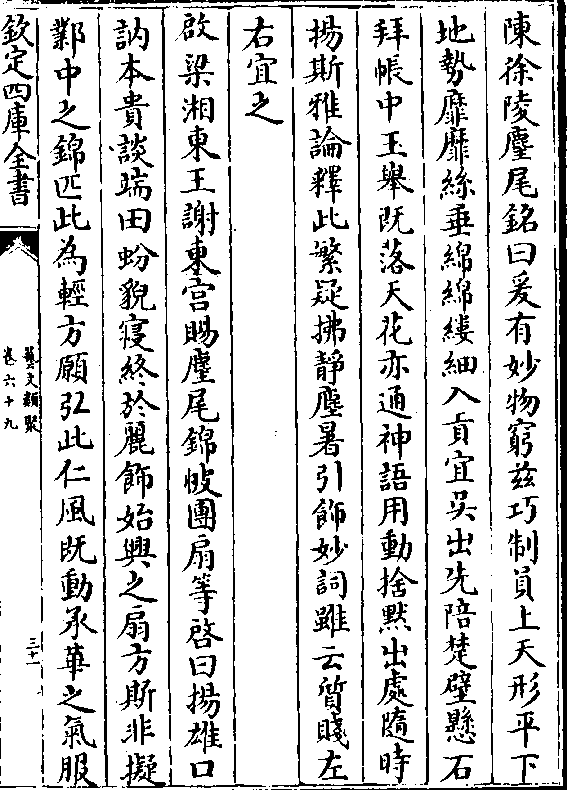 陳徐陵麈尾銘曰爰有妙物窮兹巧制員上天形平下
地勢靡靡絲垂綿綿縷細入貢宜吳出先陪楚壁懸石
拜帳中玉舉既落天花亦通神語用動捨默出處隨時
揚斯雅論釋此繁疑拂靜塵暑引飾妙詞雖云質賤左
右宜之
啟梁湘東王謝東宫賜麈尾錦帔團扇等啓曰揚雄口
訥本貴談端田蚡貌寑終於麗飾始興之扇方斯非擬
鄴中之錦匹此為輕方願弘此仁風既動承華之氣服
欽定四庫全書
藝文類聚
卷六十九
三十一